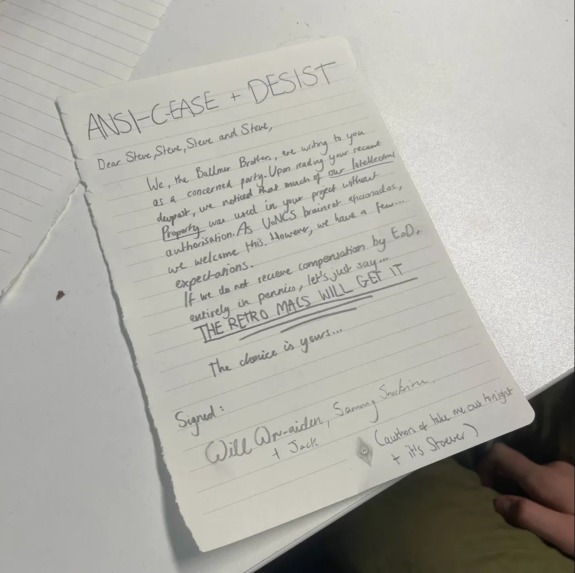 ANSI-C-EASE + DESIST
Dear Steve, Steve, Steve and Steve,
We, the Ballmer Brothers, are writing to you
as a concerned party. Upon reading your recent
we noticed that much of our Intellectual
Property was used in your project without
authorisation. As UoNCS brainrot aficionados,
we welcome this. However, we have a few...
expectations.
If we do not receive compensation by EoD,
entirely in pennies, let's just say...
THE RETRO MACS WILL GET IT
The choice is yours...
Signed:
Will
+ Jack
(authors of take me out tonight
+ it's Stoever)